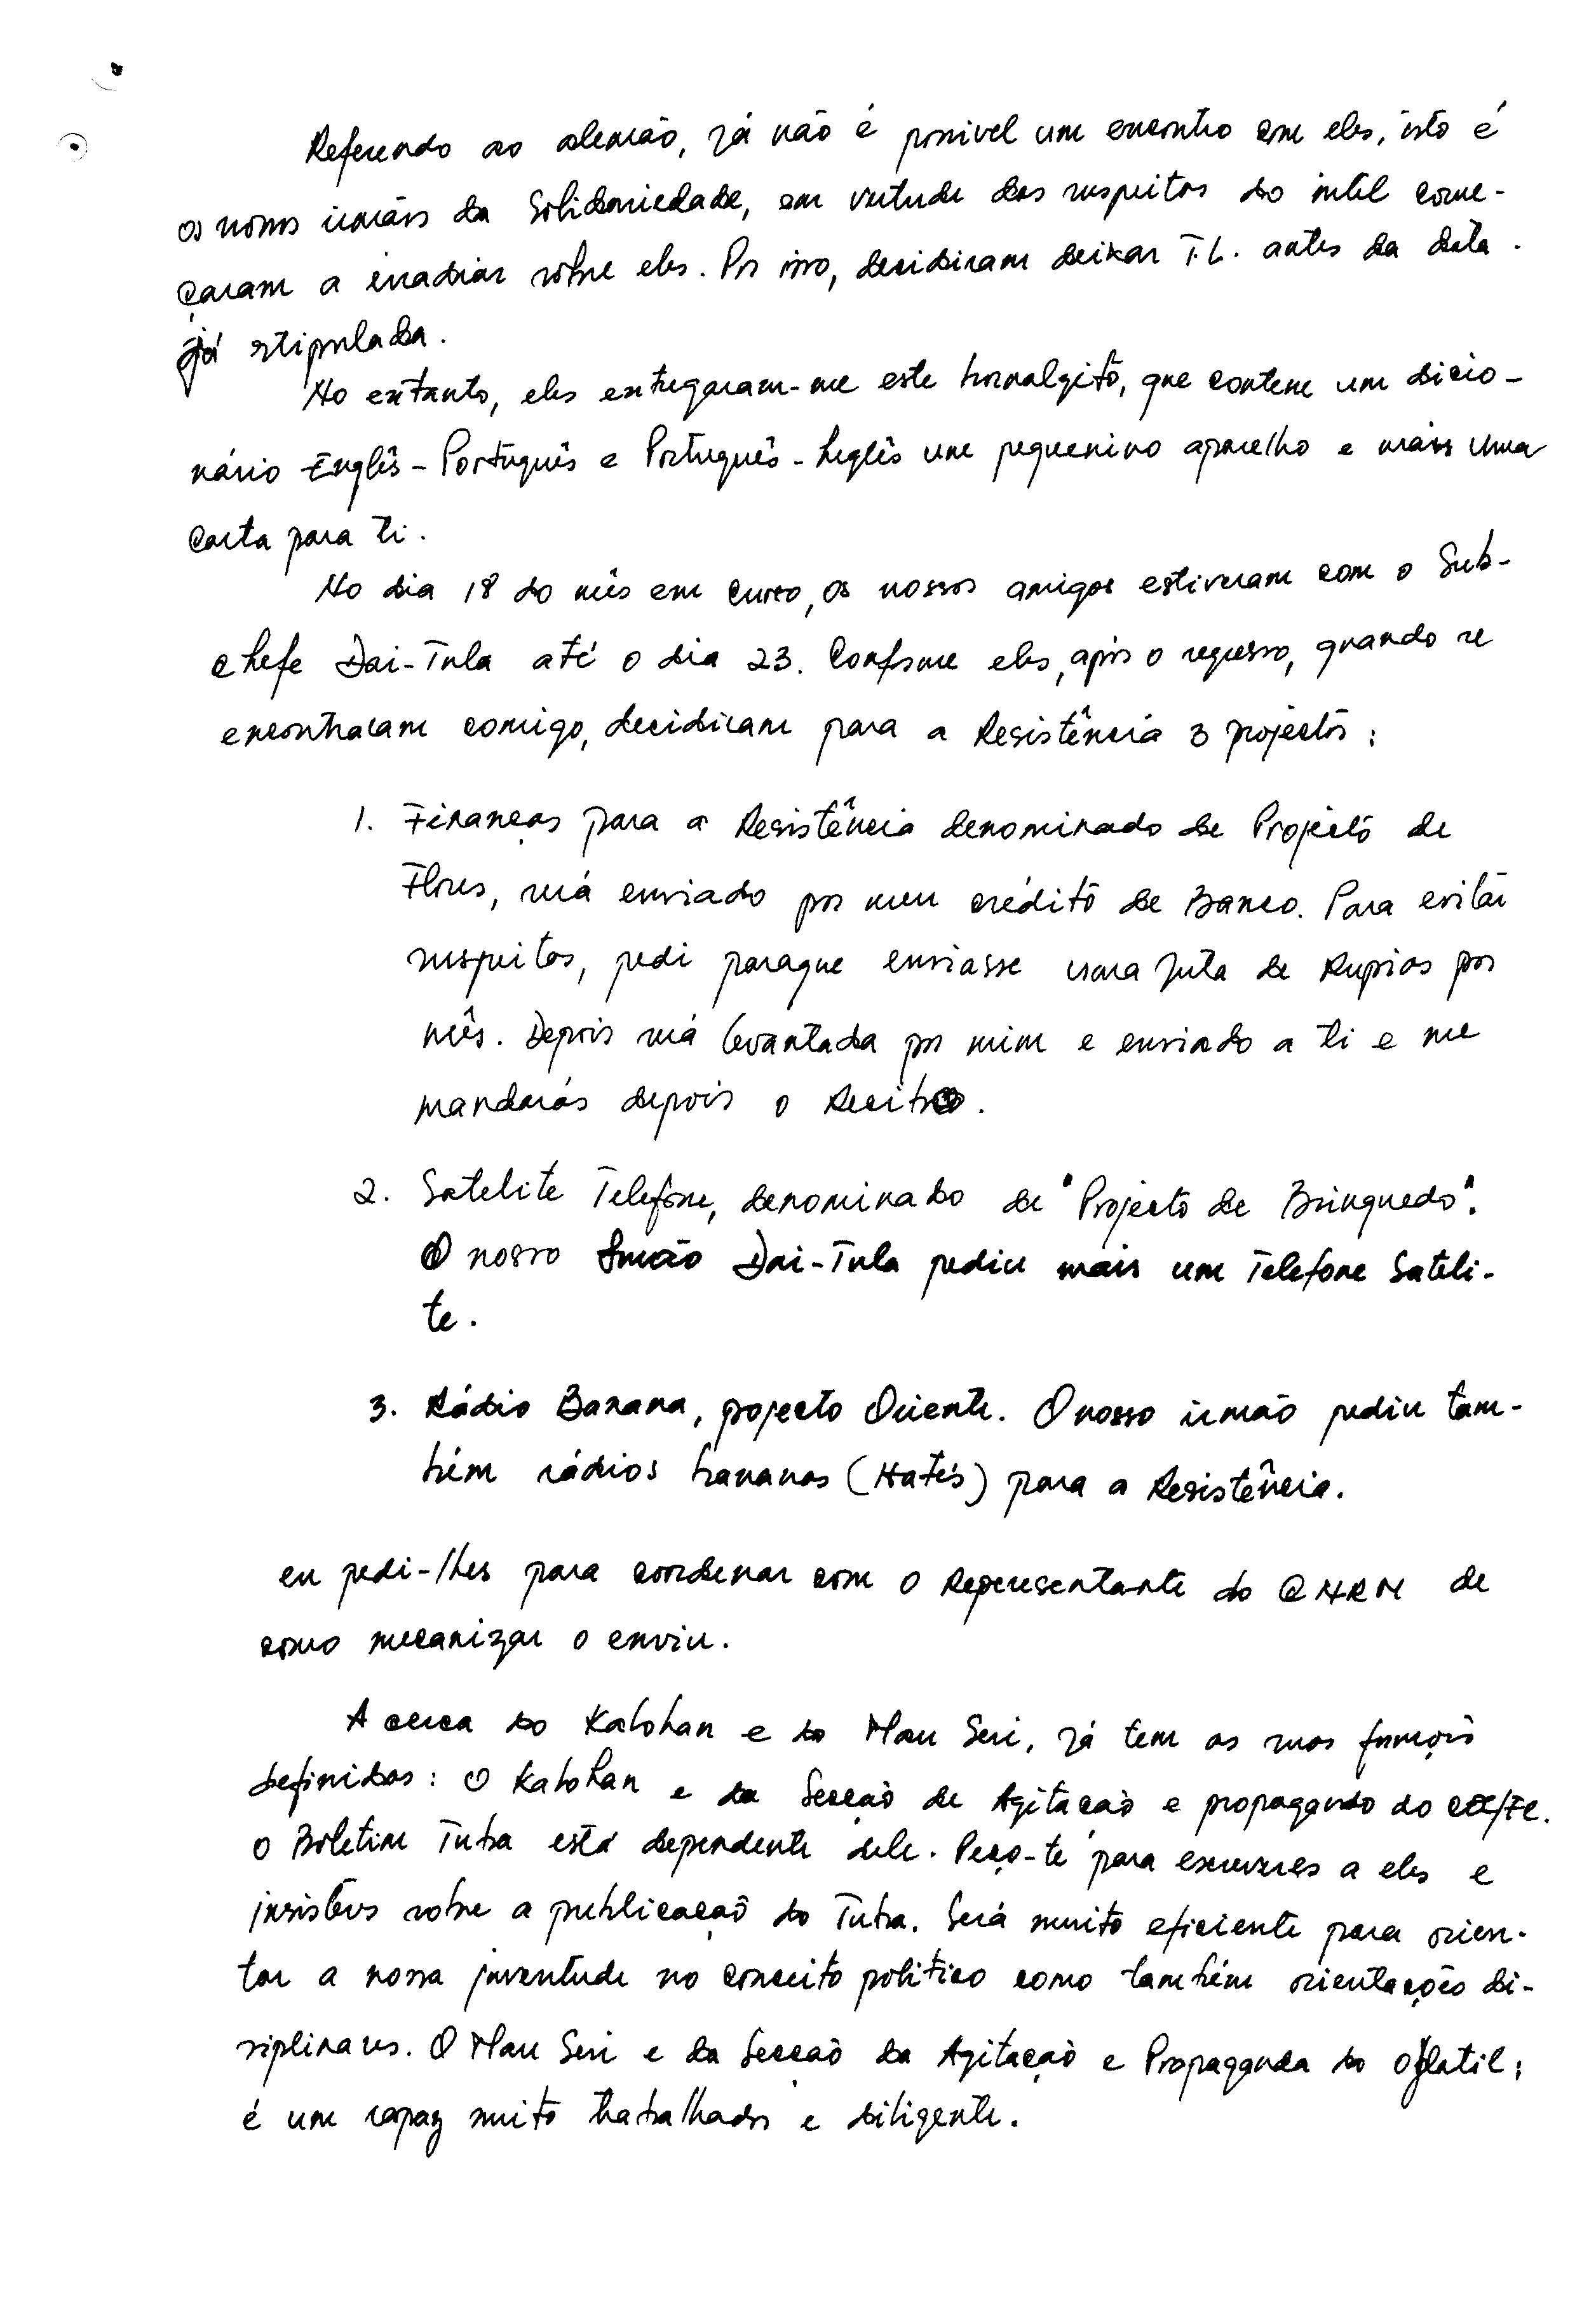 Referendo ao alemão, já não é possivel um encontro com eles, isto é
os nossos irmãos da Solidariedade, em virtude das suspeitas do intel come-
çaram a irradiar sobre eles. Por isso, decidiram deixar T.L. antes da data
já stipulada.
No entanto, eles entregaram-me este que contem um dicio-
nário Englês-Português e Português-Inglês um pequenino aparelho e mais uma
Carta para ti.
No dia 18 do mês em curso, os nossos amigos estiveram com o Sub-
chefe Dai-Tula até o dia 23. Conforme eles, após o regresso, quando se
encontraram comigo, decidiram para a Resistência 3 projectos:
1. Finanças para a Resistência denominado de Projecto de
Flores, será enviado por meu crédito de Banco. Para evitar
suspeitas, pedi paraque enviasse uma juta de Rupias por
mês. Depois será levantada por mim e enviado a ti e me
mandarás depois o Recibo.
2. Satelite Telefone, denominado de "Projecto de Brinquedo".
O nosso Irmão Dai-Tula pediu mais um Telefone Sateli-
te.
3. Rádio Banana, projecto Oriente. O nosso irmão pediu tam-
bém rádios bananas (Hatés) para a Resistência.
eu pedi-lhes para coordenar com o Representante do CNRM de
como mecanizar o enviu.
A cerca do Kalohan e do Mau Seri, já tem as suas funções
definidas: O Kalohan e da Secção de Agitação e propaganda do CEE/FC.
O Boletim Tuba está dependente dele. Peço-te para escreveres a eles e
insisteres sobre a publicação do Tuba. Será muito eficiente para orien-
tar a nossa juventude no conceito politico como também orientações di-
siplinares. O Mau Seri e da Secção da Agitação e Propaganda do Ojelatil;
é um rapaz muito trabalhador e diligente.